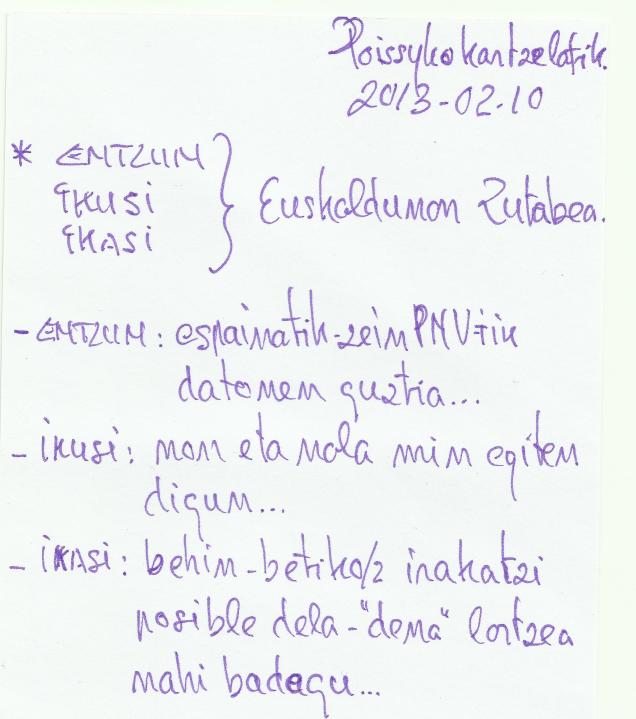 Poissyko kartzelatik.
2013-02-10
* ENTZUN
IKUSI
IKASI
} Euskaldunon Zutabea.
- ENTZUN: espainatik-zein PNVtik
datorren guztia...
- iKUSi: non eta nola min egiten
digun...
- iKASi: behin-betiko/z irakatzi
posible dela-"dena" lortzea
nahi badegu...